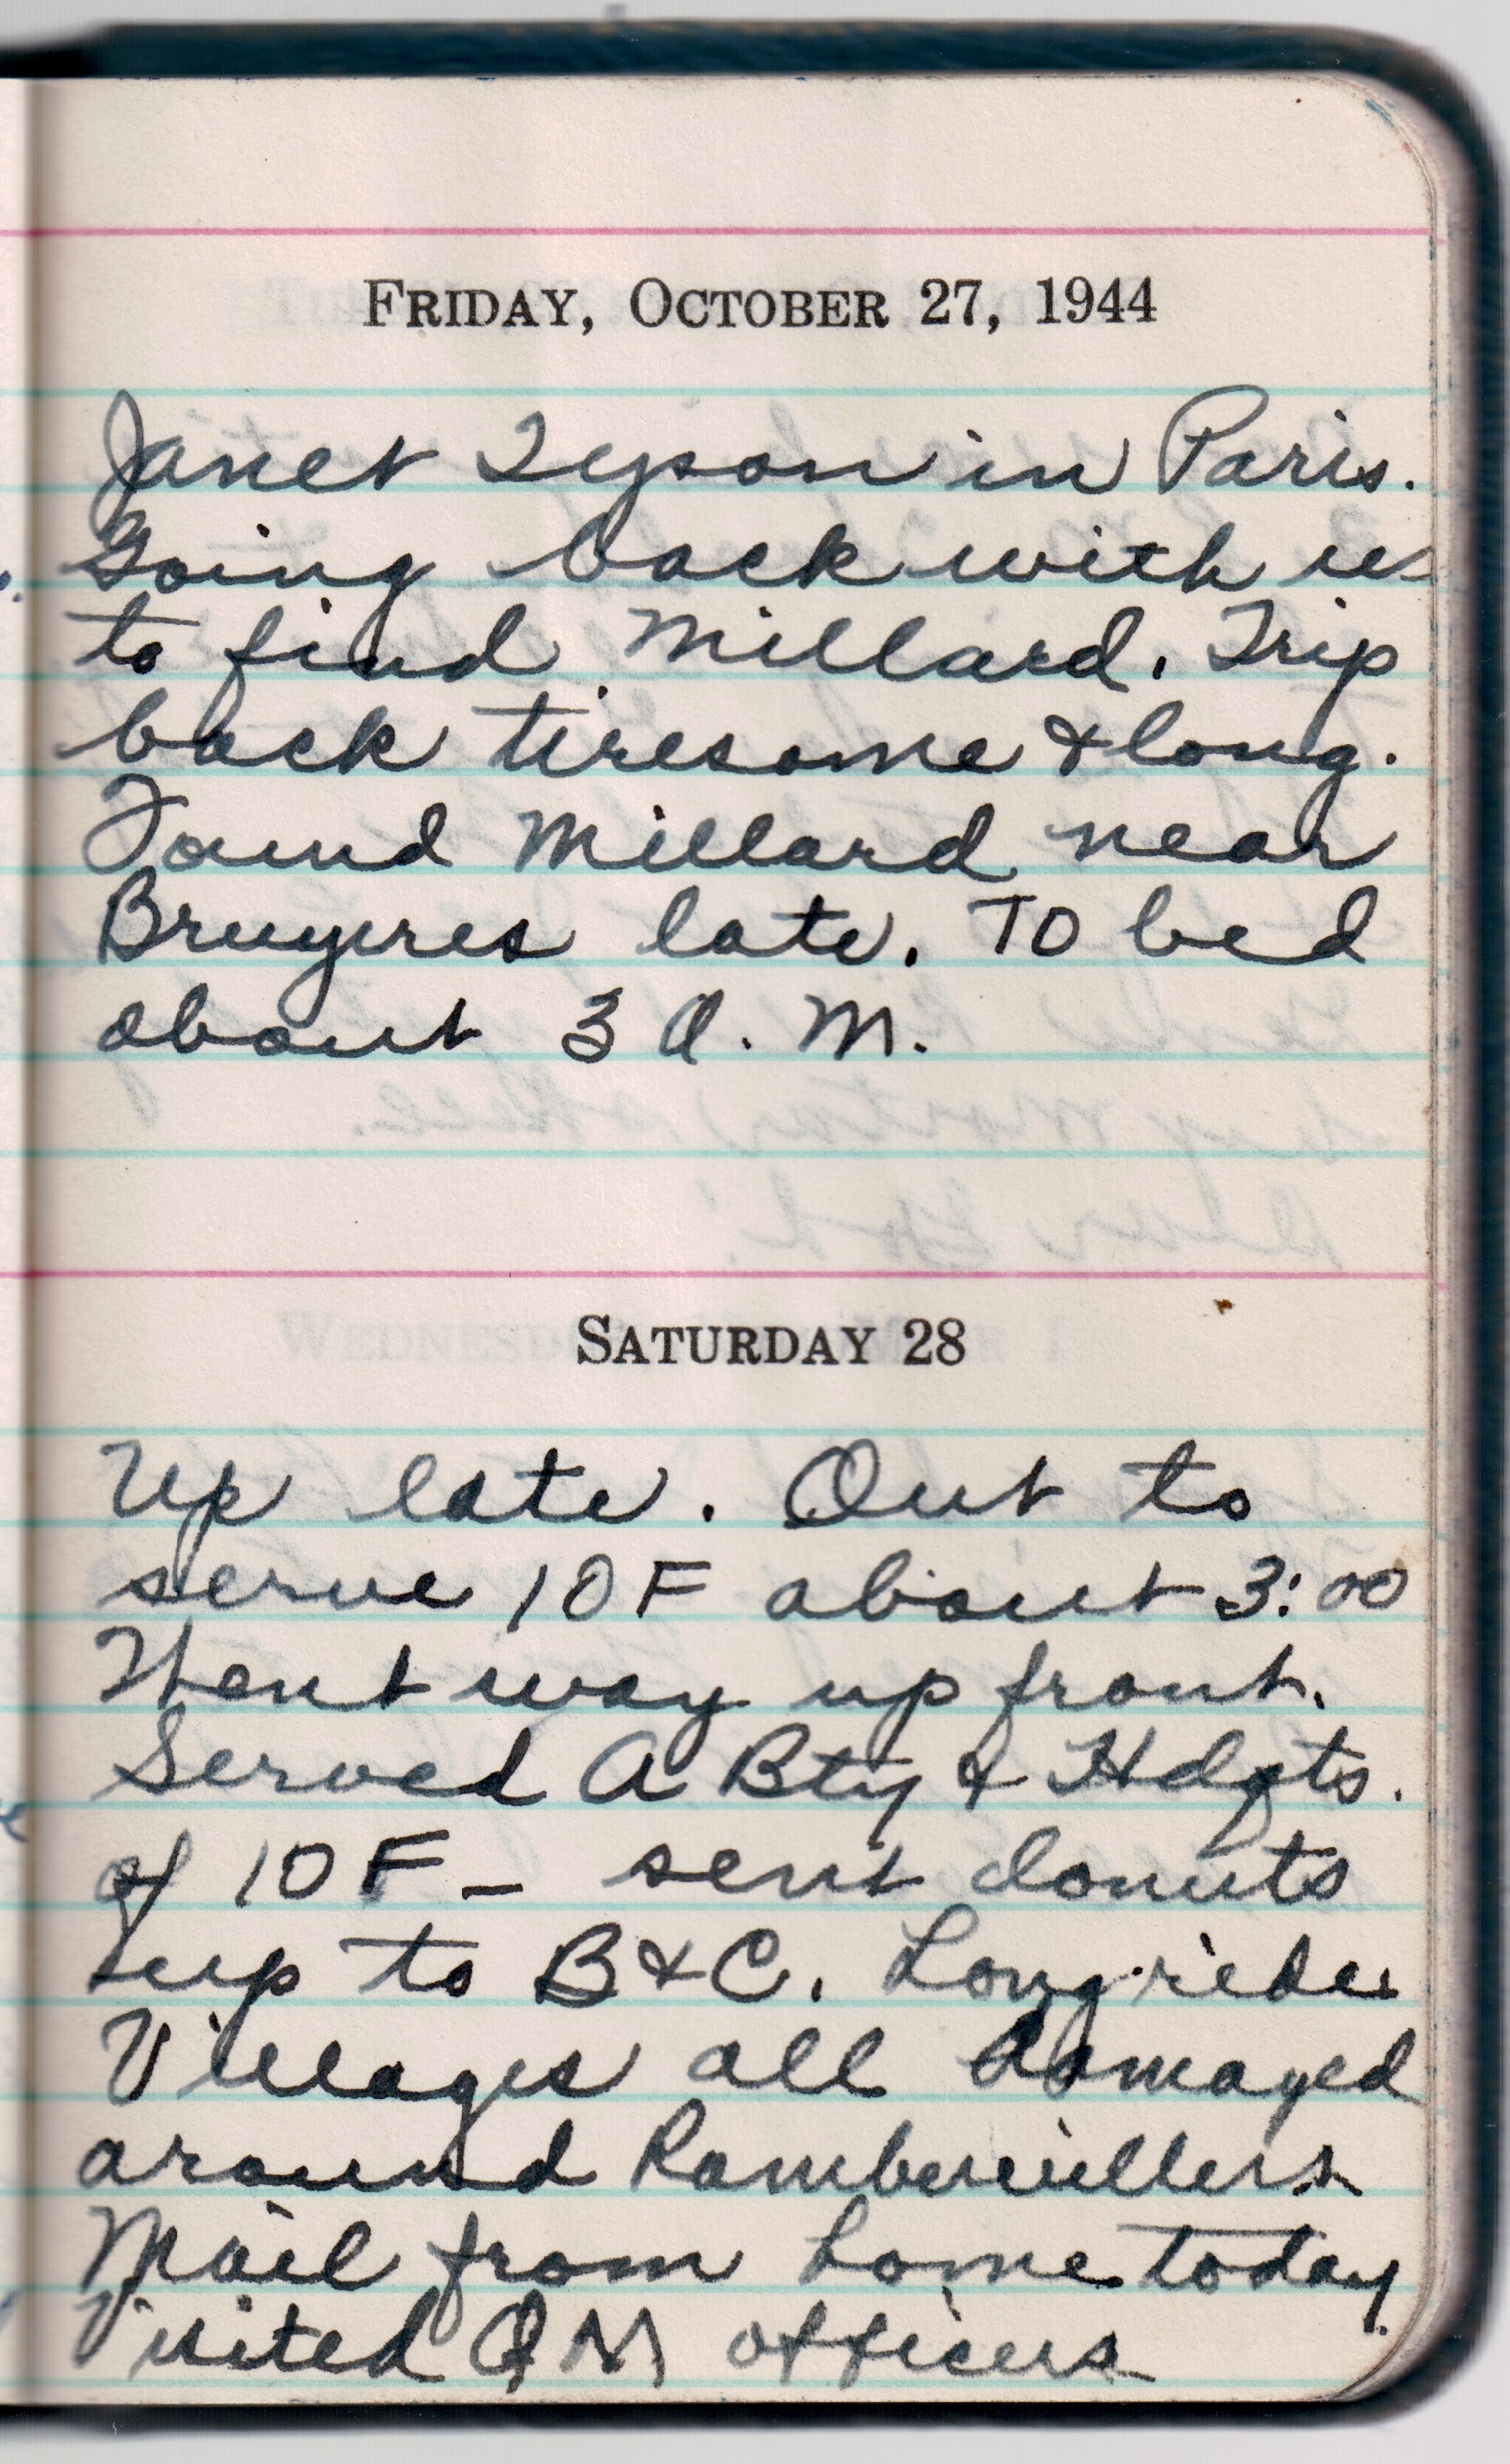 FRIDAY, OCTOBER 27, 1944
Janet Tyson in Paris.
Going back with us
to find Millard. Trip
back tiresome & long.
Found Millard near
Bruyeres late. TO bed
about 3 A. M.
SATURDAY 28
Up late. Out to
serve 10F about 3:00
Went way up front.
Served A Bty & Hdqts.
of 10F - sent donuts
up to B & C. Long ride.
Villages all damaged
around Rambervillers.
Mail from home today.
Visited QM officers